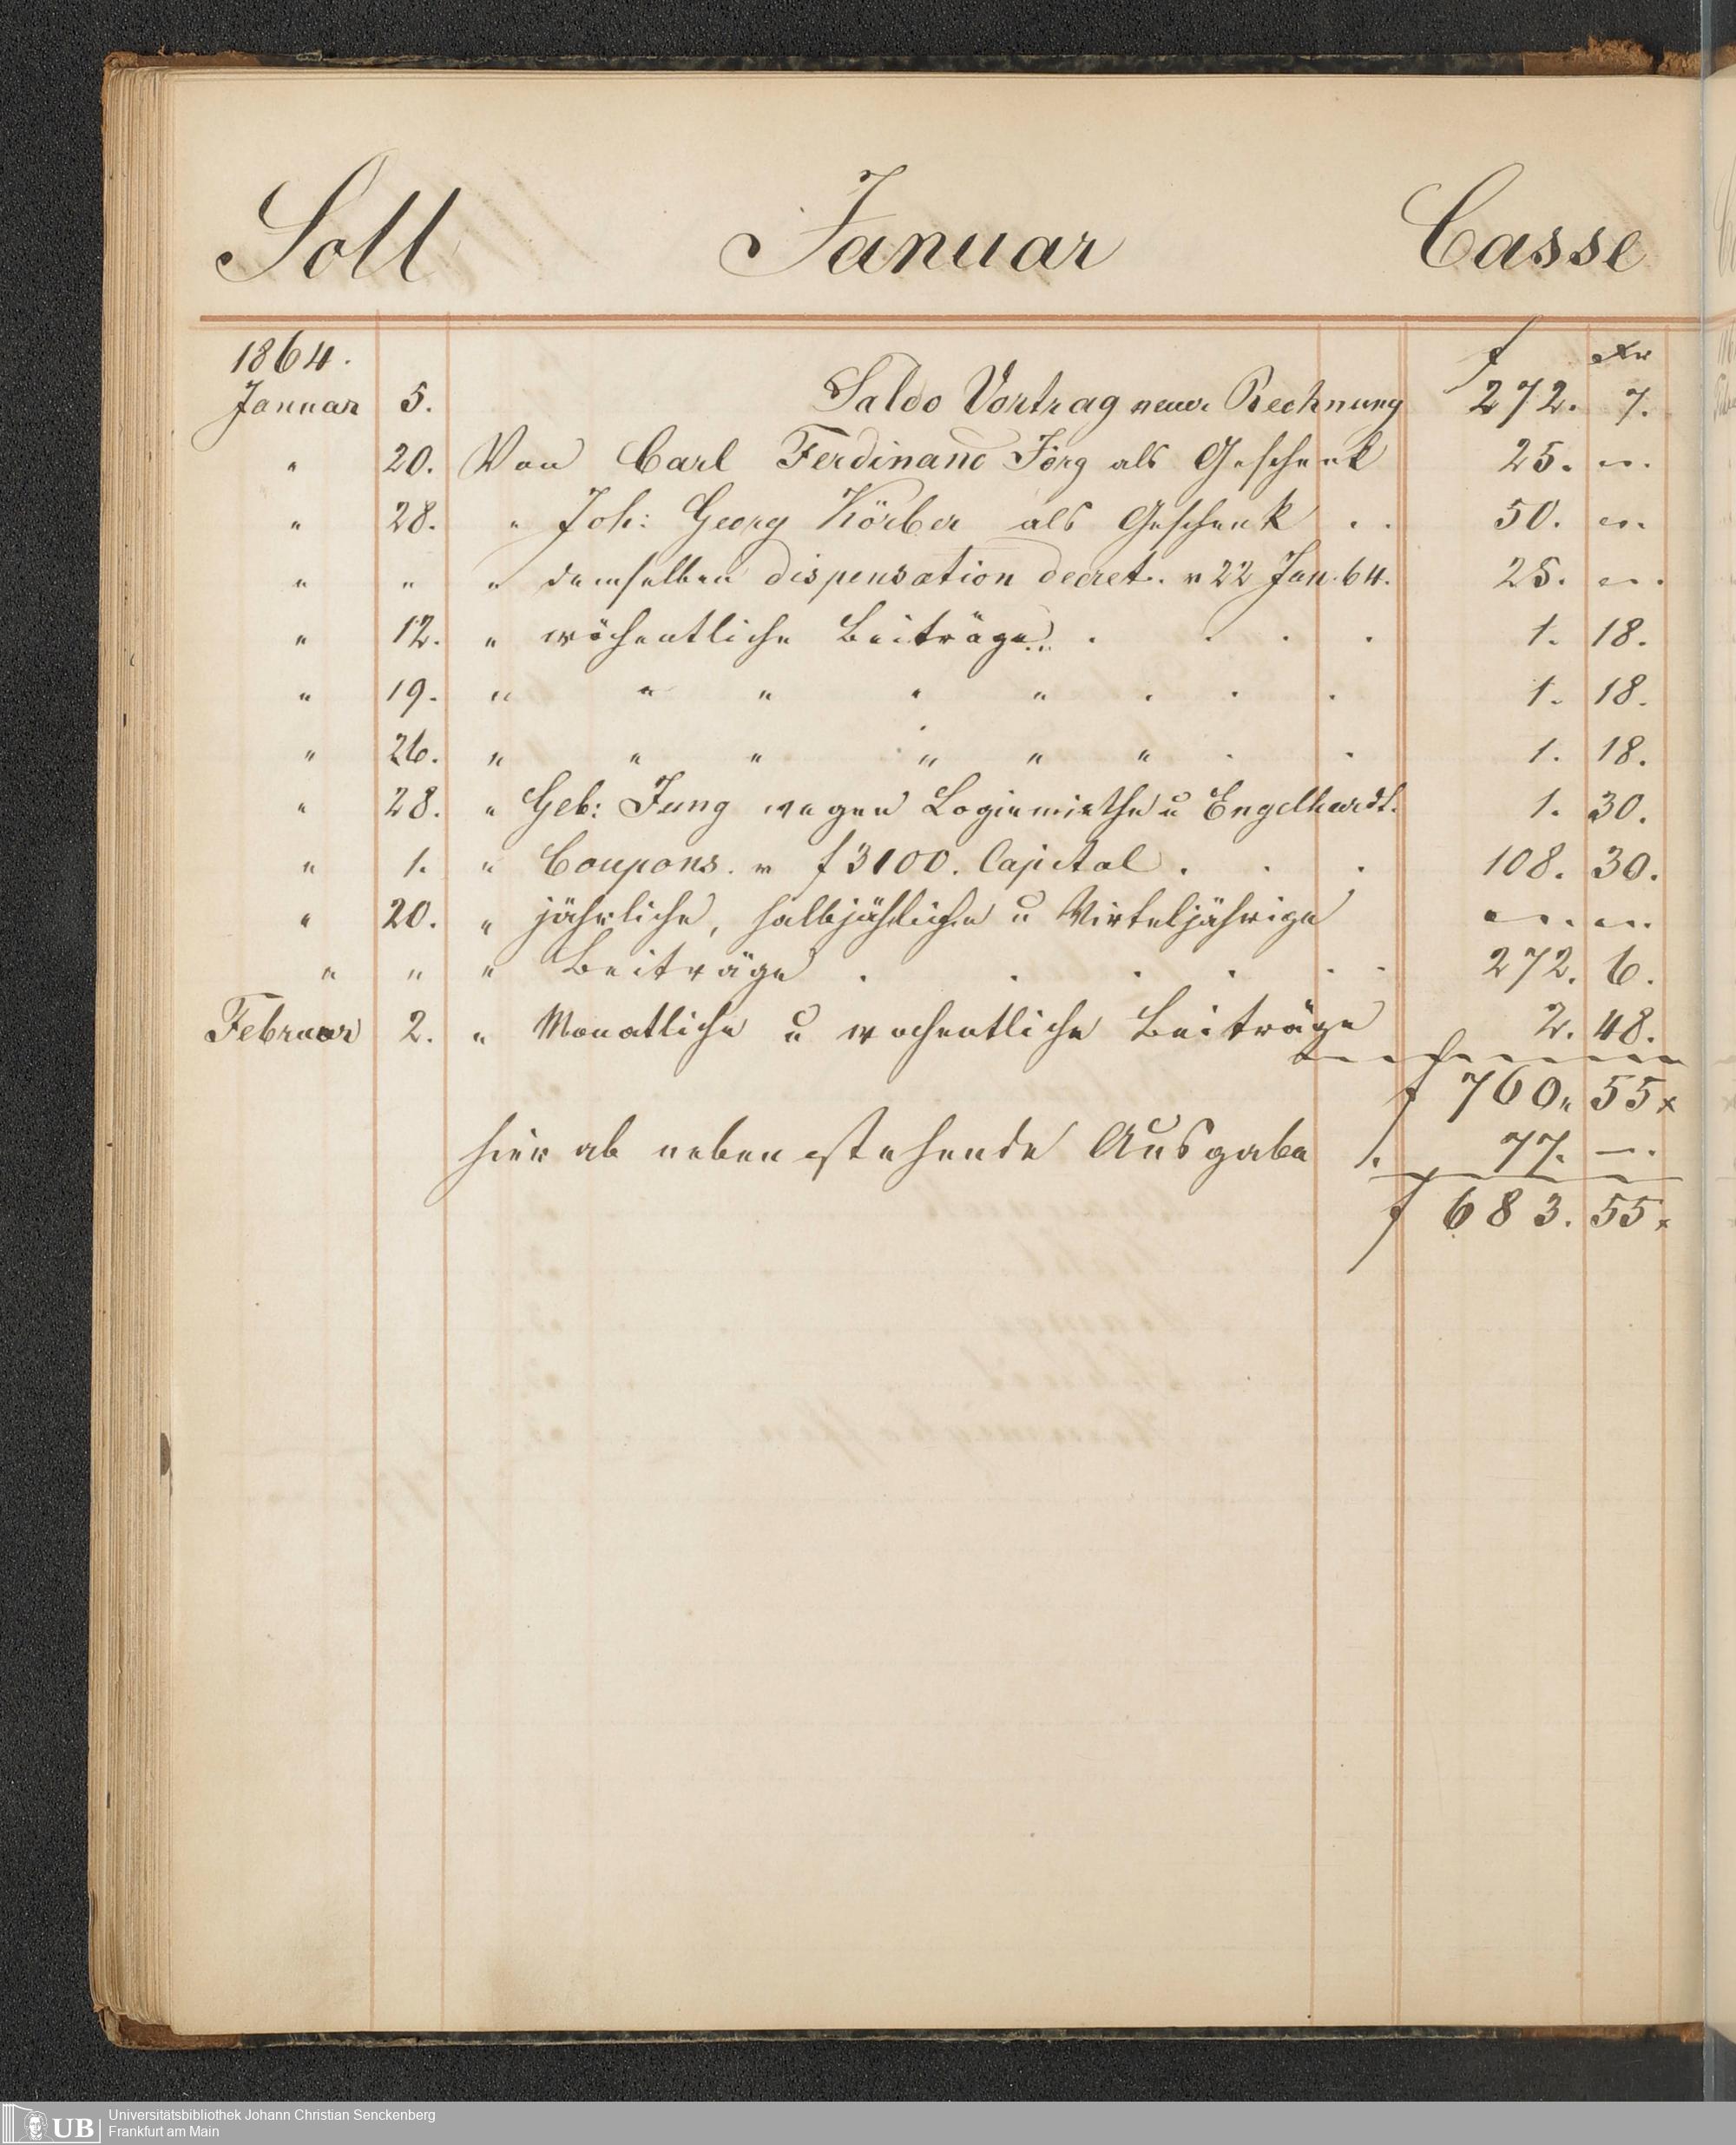 Soll Januar Casse
1864. f xr
Januar 5. Saldo Vortrag neuer Rechnung 272. 7.
" 20. Von Carl Ferdinand Jörg als Geschenk 25. ".
" 28. " Joh: Georg Körber als Geschenk . . 50. ".
" " " demselben dispensation decret. v 22 Jan. 64. 25. ".
" 12. " wöchentliche Beiträge . . . . 1. 18.
" 19. " " " " " . . . 1. 18.
" 26. " " " " " " . . 1. 18.
" 28. " Geb: Jung wegen Logiemiethe u Engelhardt. 1. 30.
" 1. " Coupons. v f 3100. Capital . . . 108. 30.
" 20. " jährliche, halbjährliche u Virteljährige ". ".
" " " Beiträge . . . . . . 272. 6.
Februar 2. " Monatliche u wochentliche Beiträge 2. 48.
f 760," 55 x
hier ab nebenstehende Ausgabe . 77. —.
f 683. 55 x
UB Universitätsbibliothek Johann Christian Senckenberg
Frankfurt am Main